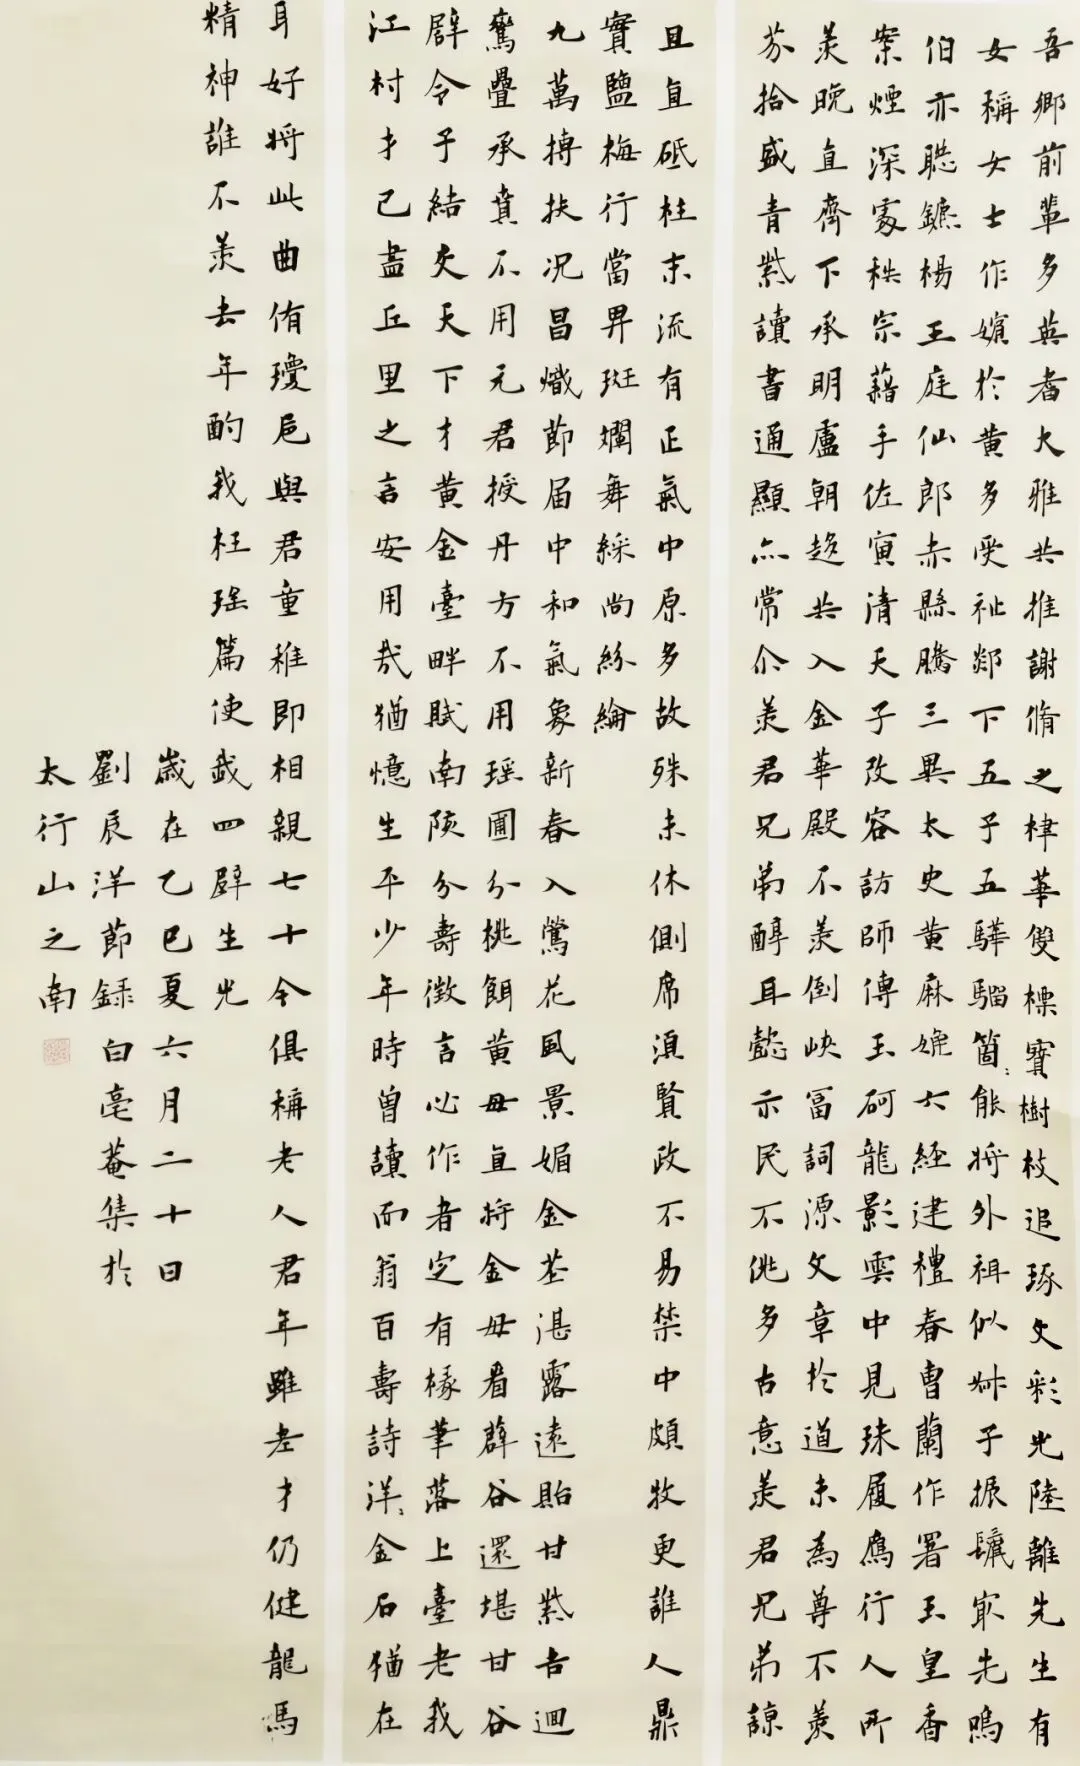 吾鄉前輩多英耆大雅共推謝脩之棣華雙標寶樹枝追琢文彩光陸離先生有
女稱女士作嬪於黃多受祉鄰下五子五驊騮箇箇能將外祖似叔子振鬣最先鳴
伯亦聰鑣楊王庭仙郎赤縣騰三異太史黃麻娩六經建禮春曹蘭作署玉皇香
案煙深處秩宗藉手佐寅清天子改容訪師傅玉珂龍影雲中見珠履鴈行人所
羨晚直齋下承明廬朝趨共入金華殿不羨倒峽富詞源文章於道未為尊不羨
芥拾盛青紫讀書通顯亦常介羨君兄弟醇耳懿示民不佻多古意羨君兄弟諒
且直砥柱末流有正氣中原多故殊未休側席須賢政不易禁中頗牧更誰人鼎
實鹽梅行當畀斑斕舞綵尚紛綸
九萬摶扶況昌熾節届中和氣象新春入鶯花風景媚金莖湛露遠貽甘紫吉迴
鸞疊承賁不用元君授丹方不用瑤圃分桃餌黃毋直將金毋看薜谷還堪甘谷
辟令子結交天下才黃金臺畔賦南陔分壽徵言必作者定有椽筆落上臺老我
江村才已盡丘里之言安用哉猶憶生平少年時曾讀而翁百壽詩洋洋金石猶在
耳好將此曲侑瓊卮與君童稚即相親七十今俱稱老人君年雖老才仍健龍馬
精神誰不羨去年酌我枉瑤篇使我四壁生光
歲在乙巳夏六月二十日
劉辰洋節錄白毫菴集於
太行山之南